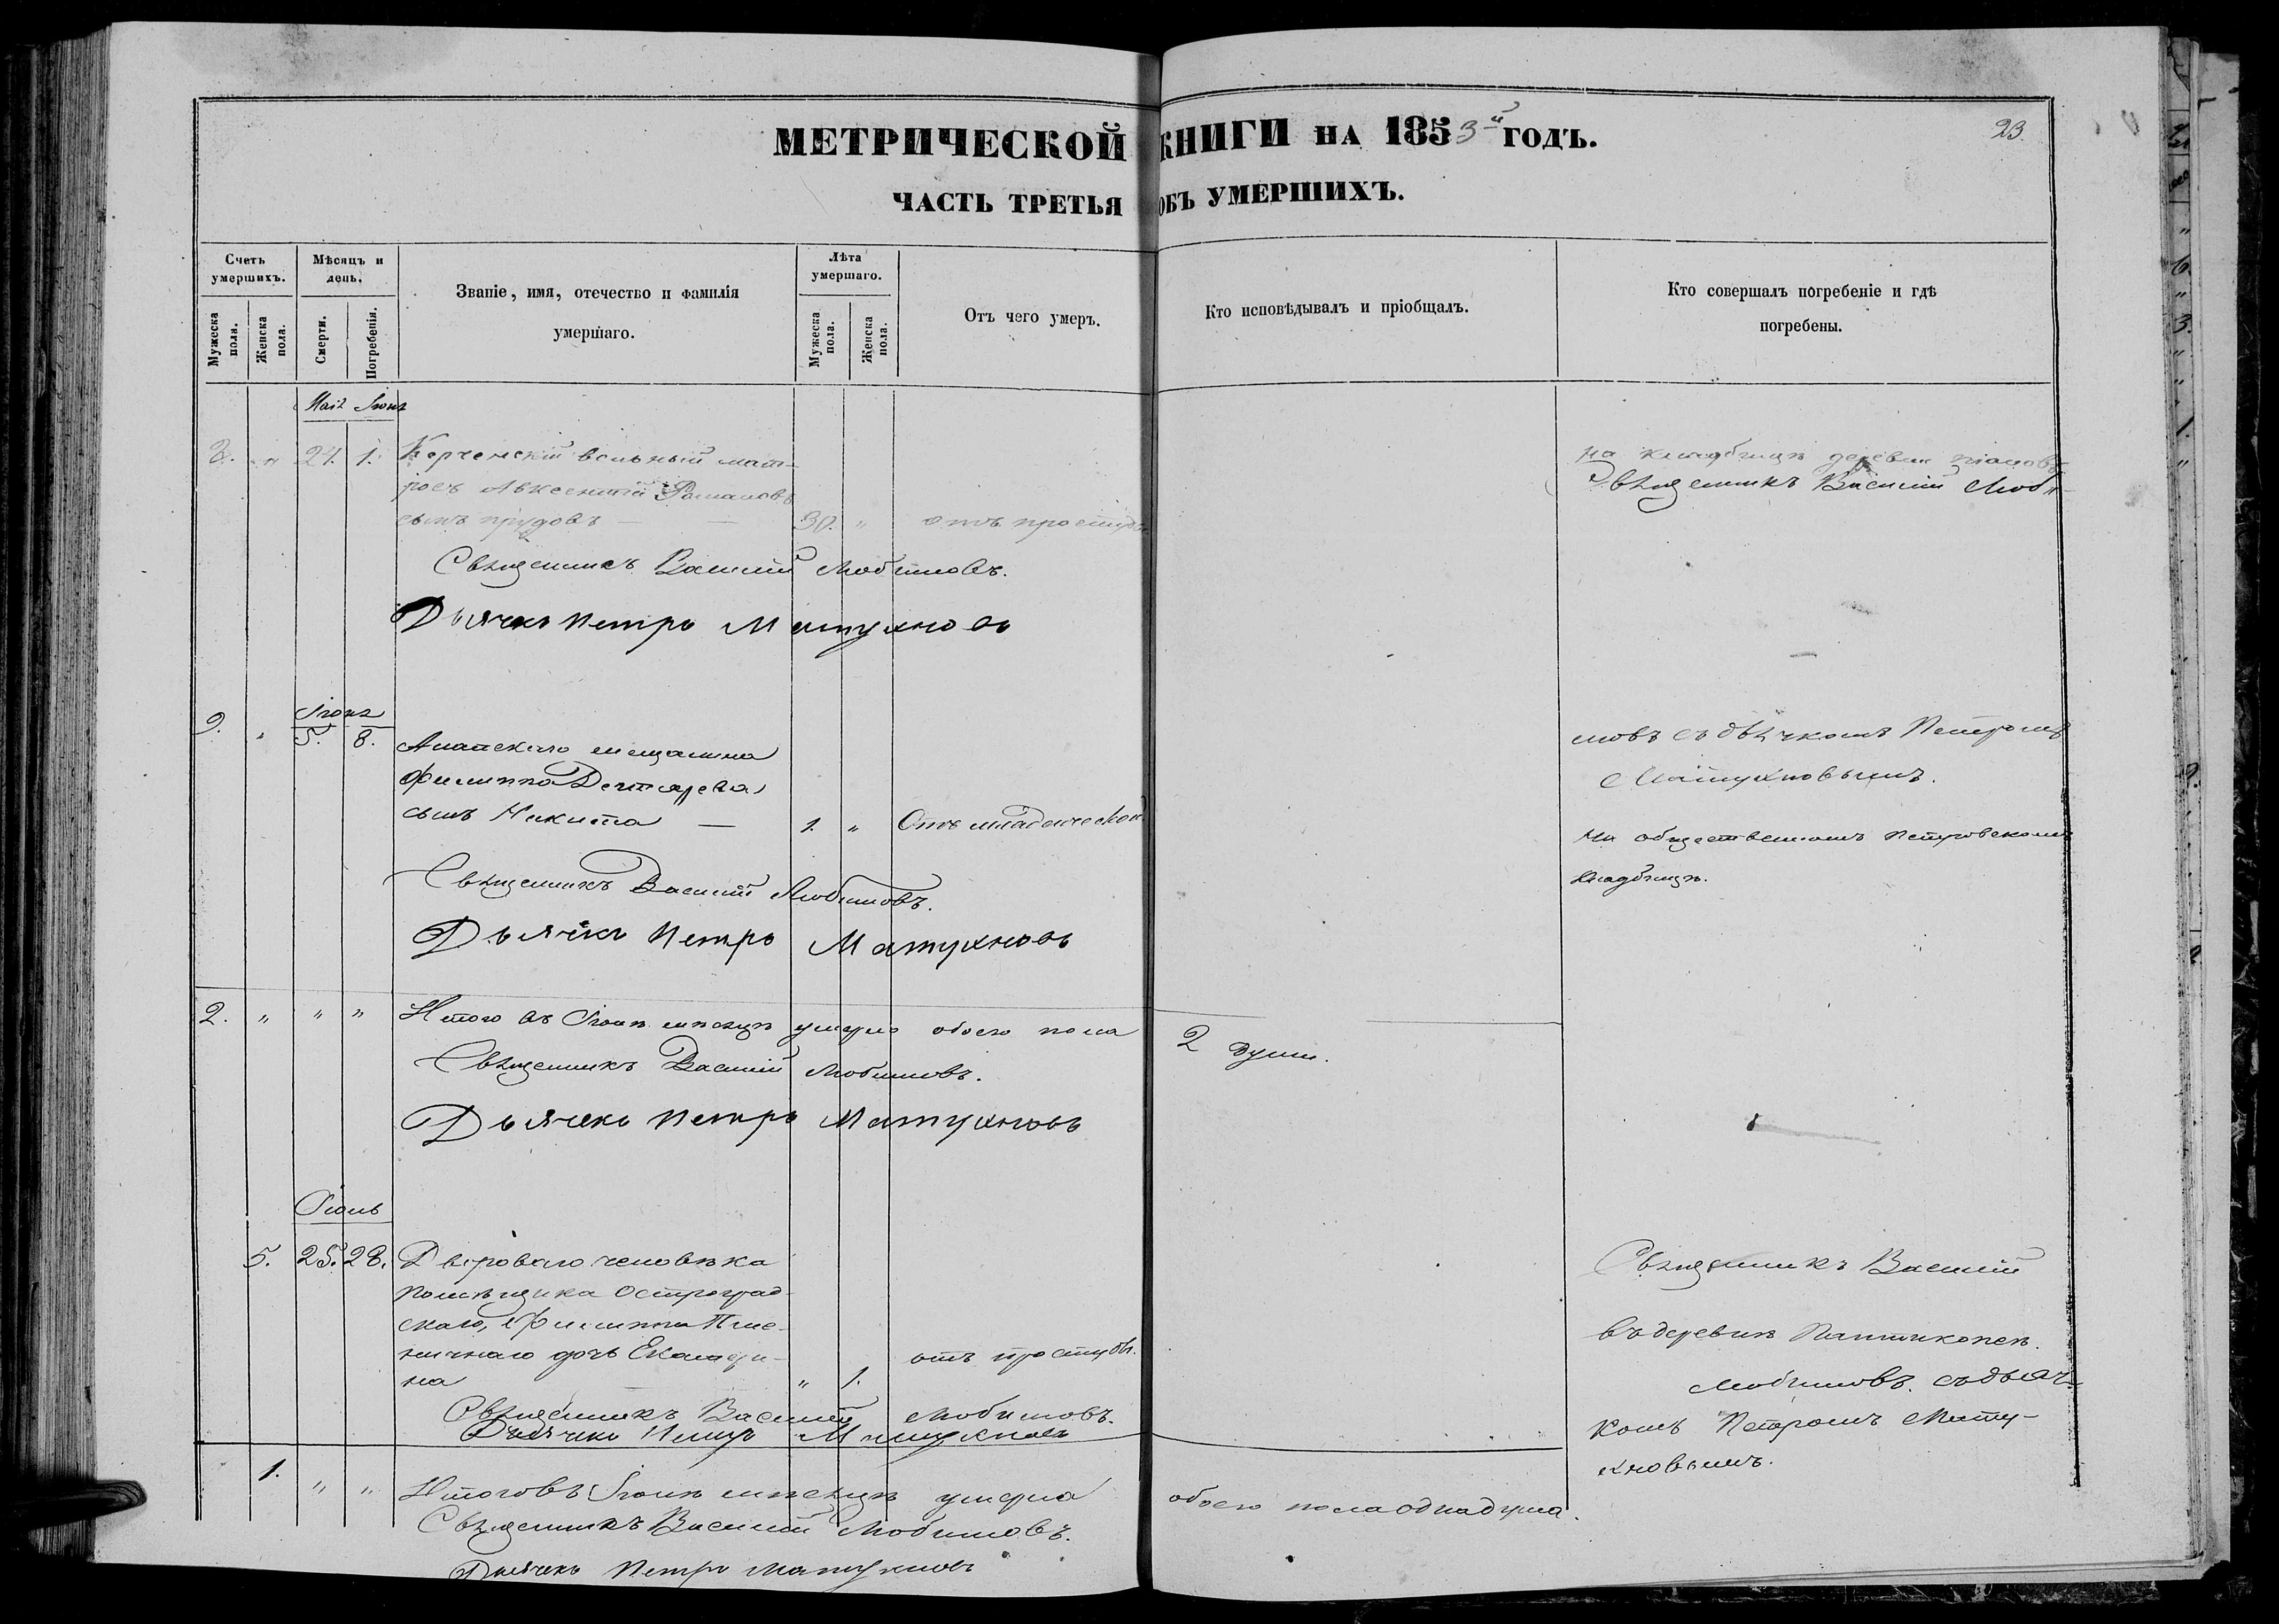 МЕТРИЧЕСКОЙ КНИГИ НА 1853й ГОДЪ.
23.
ЧАСТЬ ТРЕТЬЯ ОБЪ УМЕРШИХЪ.
Счетъ умершихъ.
Мужеска пола.
Женска пола.
Мѣсяцъ и день.
Смерти.
Погребенія.
Званіе, имя, отечество и фамилія
умершаго.
Лѣта умершаго.
Мужеска пола.
Женска пола.
Отъ чего умеръ.
Кто исповѣдывалъ и пріобщалъ.
Кто совершалъ погребеніе и гдѣ
погребены.
8. " 24. 1. Керченскій вольный мат-
росъ Авксентій Романовъ
сынъ Прудовъ — — 30. " отъ простуды
Священникъ Василій Любимовъ.
Дьячекъ Петръ Матухновъ
на кладбищѣ деревни
Священникъ Василій Люби-
Іюнь
9. " 5. 8. Анапскаго мещанина
Филиппа Дехтярева
сынъ Никита — 1. " Отъ младенческой
Священникъ Василій Любимовъ.
Дьячекъ Петръ Матухновъ
мовъ съ дьячкомъ Петромъ
Матухновымъ.
на общественномъ Петровскомъ
кладбищѣ.
2. " " " Итого въ Іюнѣ мѣсяцѣ умерло обоего пола 2 души.
Священникъ Василій Любимовъ.
Дьячекъ Петръ Матухновъ
Іюль
5. 25. 28. Двороваго человѣка
помѣщика Остроград-
скаго, Филиппа Пше-
ничнаго дочь Екатери-
на " 1. отъ простуды.
Священникъ Василій Любимовъ.
Дьячекъ Петръ Матухновъ
Священникъ Василій
въ деревнѣ
Любимовъ. съ дьяч-
комъ Петромъ Мату-
хновымъ.
1. " " Итого въ Іюлѣ мѣсяцѣ умерла обоего пола одна душа.
Священникъ Василій Любимовъ.
Дьячекъ Петръ Матухновъ